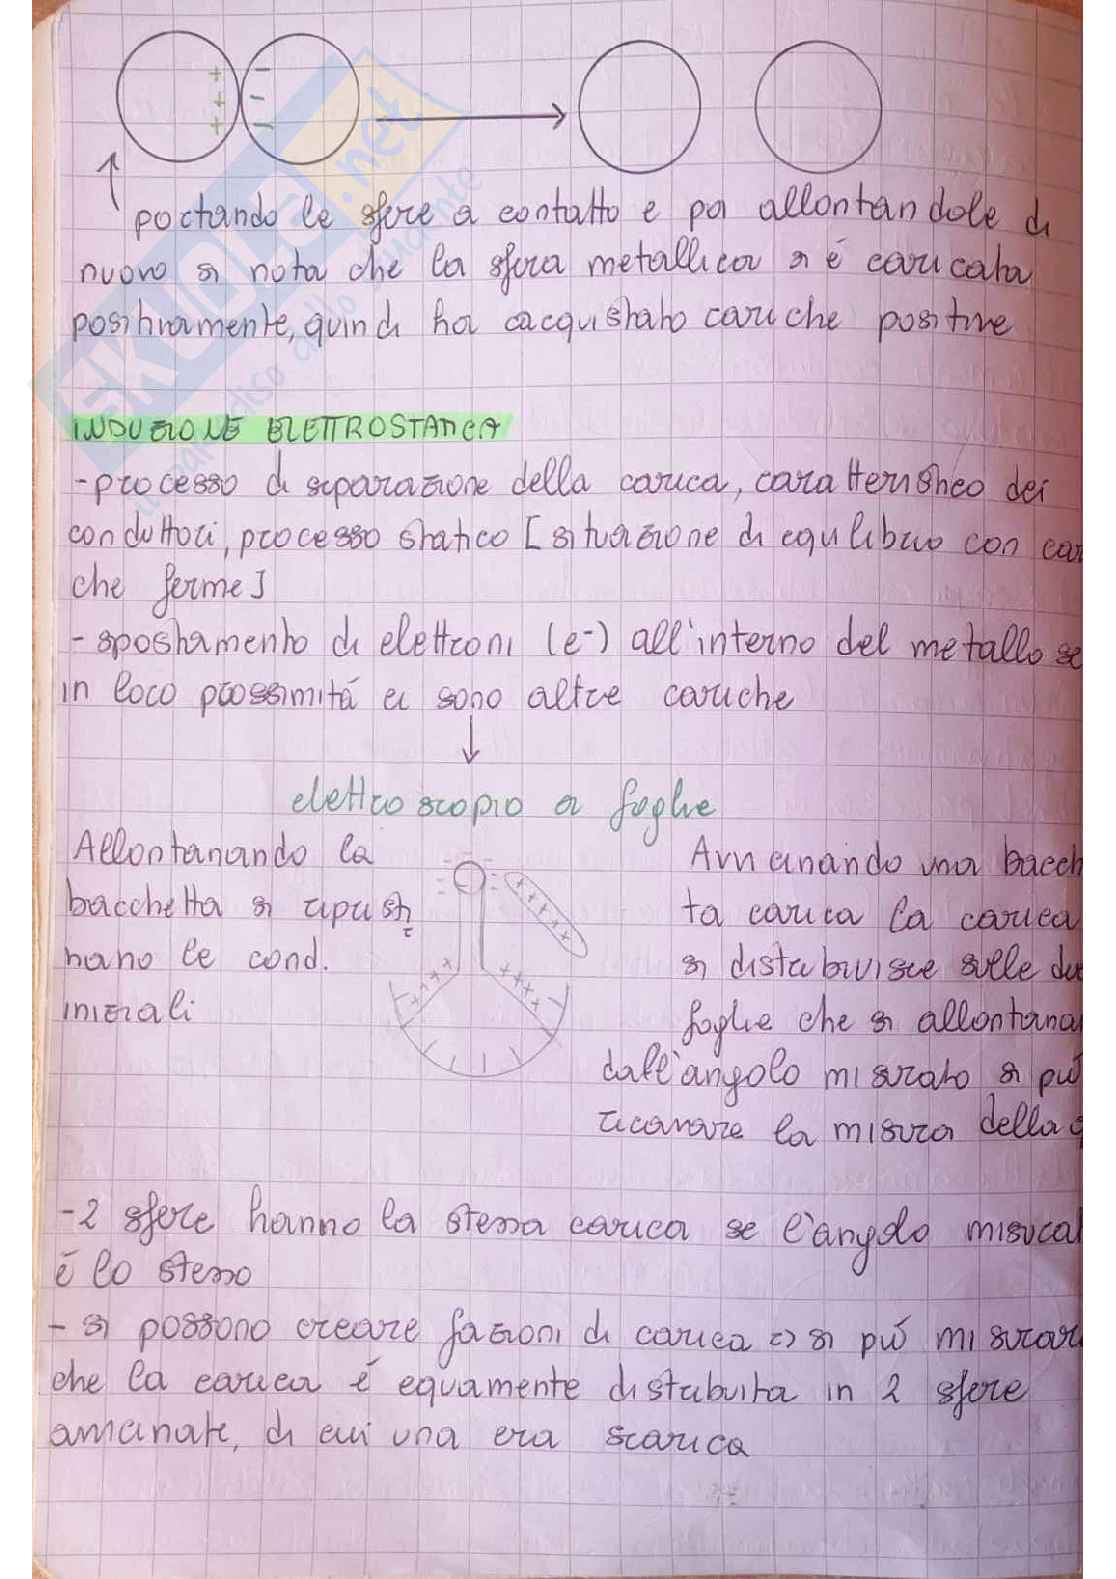 portando le sfere a contatto e poi allontandole di
nuovo si nota che la sfera metallica si é caricata
positivamente, quindi ha acquistato cariche positive
INDUZIONE ELETTROSTATICA
-processo di separazione della carica, caratteristico dei
conduttori, processo statico [situazione di equilibrio con car
che ferme]
-spostamento di elettroni (e-) all'interno del metallo se
in loro prossimitá ci sono altre cariche
elettroscopio a foglie
Allontanando la
bacchetta si ripristi
nano le cond.
iniziali
Avvicinando una bacch
ta carica la carica
si distribuisce sulle due
foglie che si allontana
dall'angolo misurato si puó
ricavare la misura della q
-2 sfere hanno la stessa carica se l'angolo misurat
é lo stesso
- si possono creare fazioni di carica => si puó misurar
che la carica é equamente distribuita in 2 sfere
avvicinate, di cui una era scarica
SKUOLA.net